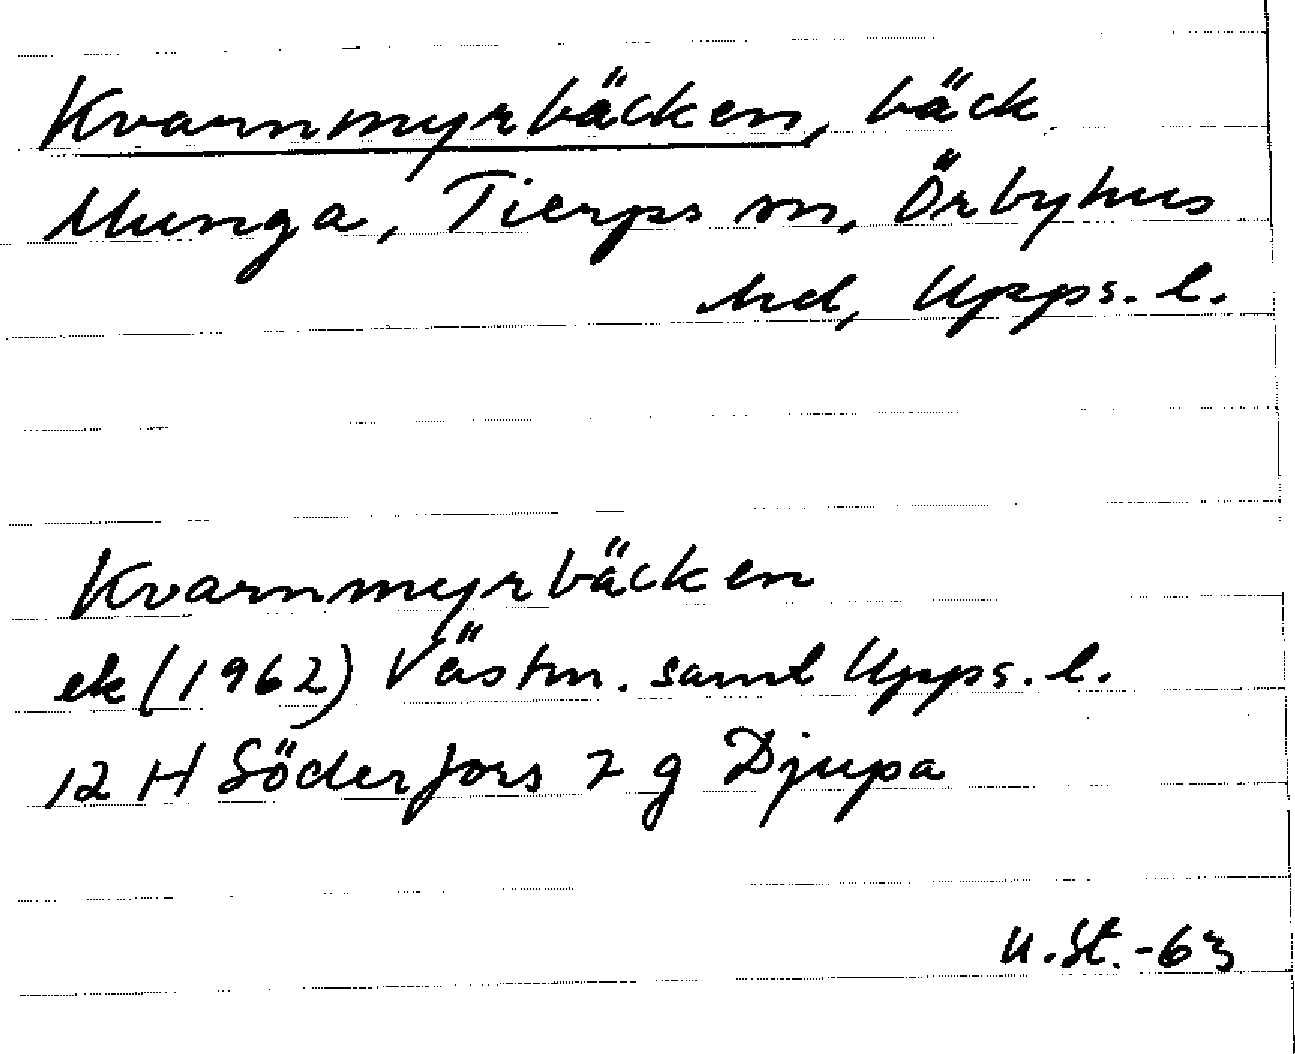 Kvarnmyrbäcken, bäck
Munga, Tierps sn, Örbyhus
hd, Upps. l.
Kvarnmyrbäcken
ek (1962) Västm. samt Upps. l.
12 H Söderfors 7 g Djupa
U. St. -63